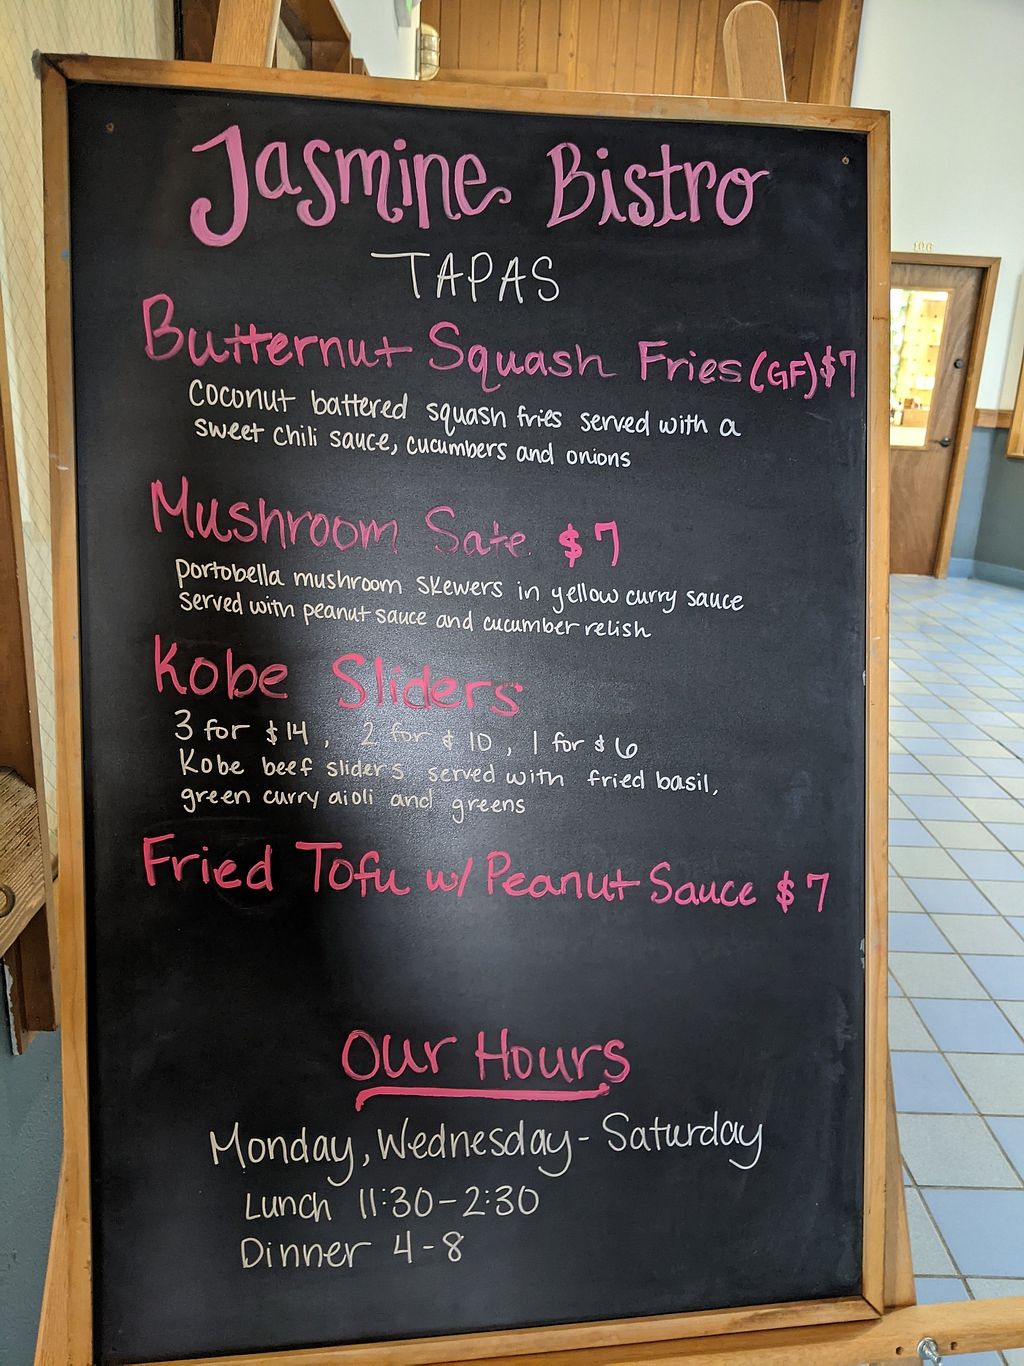 Jasmine Bistro
TAPAS
Butternut Squash Fries (GF) $7
Coconut battered squash fries served with a
sweet chili sauce, cucumbers and onions
Mushroom Sate $7
portobella mushroom skewers in yellow curry sauce
served with peanut sauce and cucumber relish
Kobe Sliders
3 for $14, 2 for $10, 1 for $6
Kobe beef sliders served with fried basil,
green curry aioli and greens
Fried Tofu w/ Peanut Sauce $7
Our Hours
Monday, Wednesday - Saturday
Lunch 11:30-2:30
Dinner 4-8
106